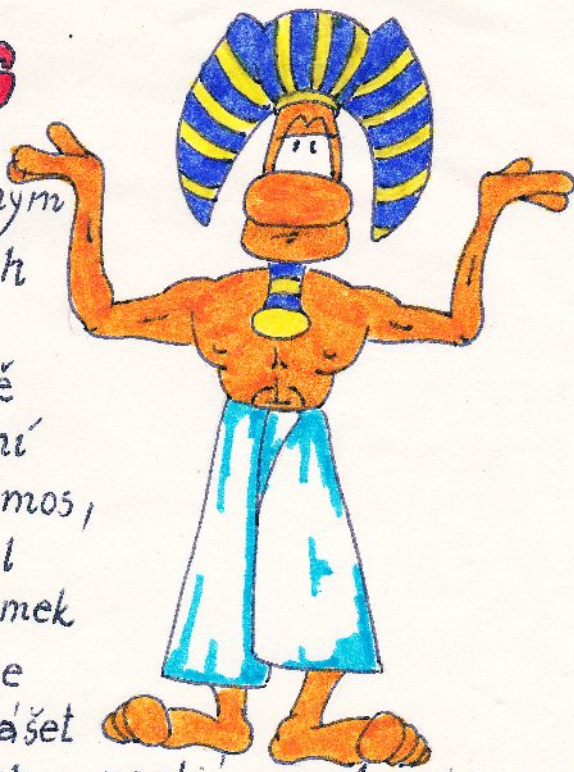 ným
h
ě
ní
mos,
l
mek
e
ášet